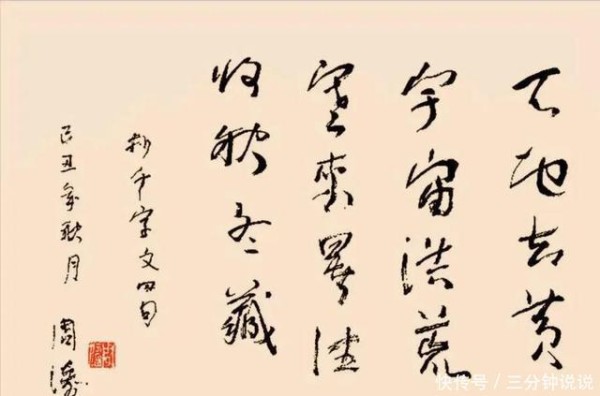 天地玄黄
宇宙洪荒
寒来暑往
收秋冬藏
抄千字文四句
己丑年秋月
周涛
快传号／三分钟说说